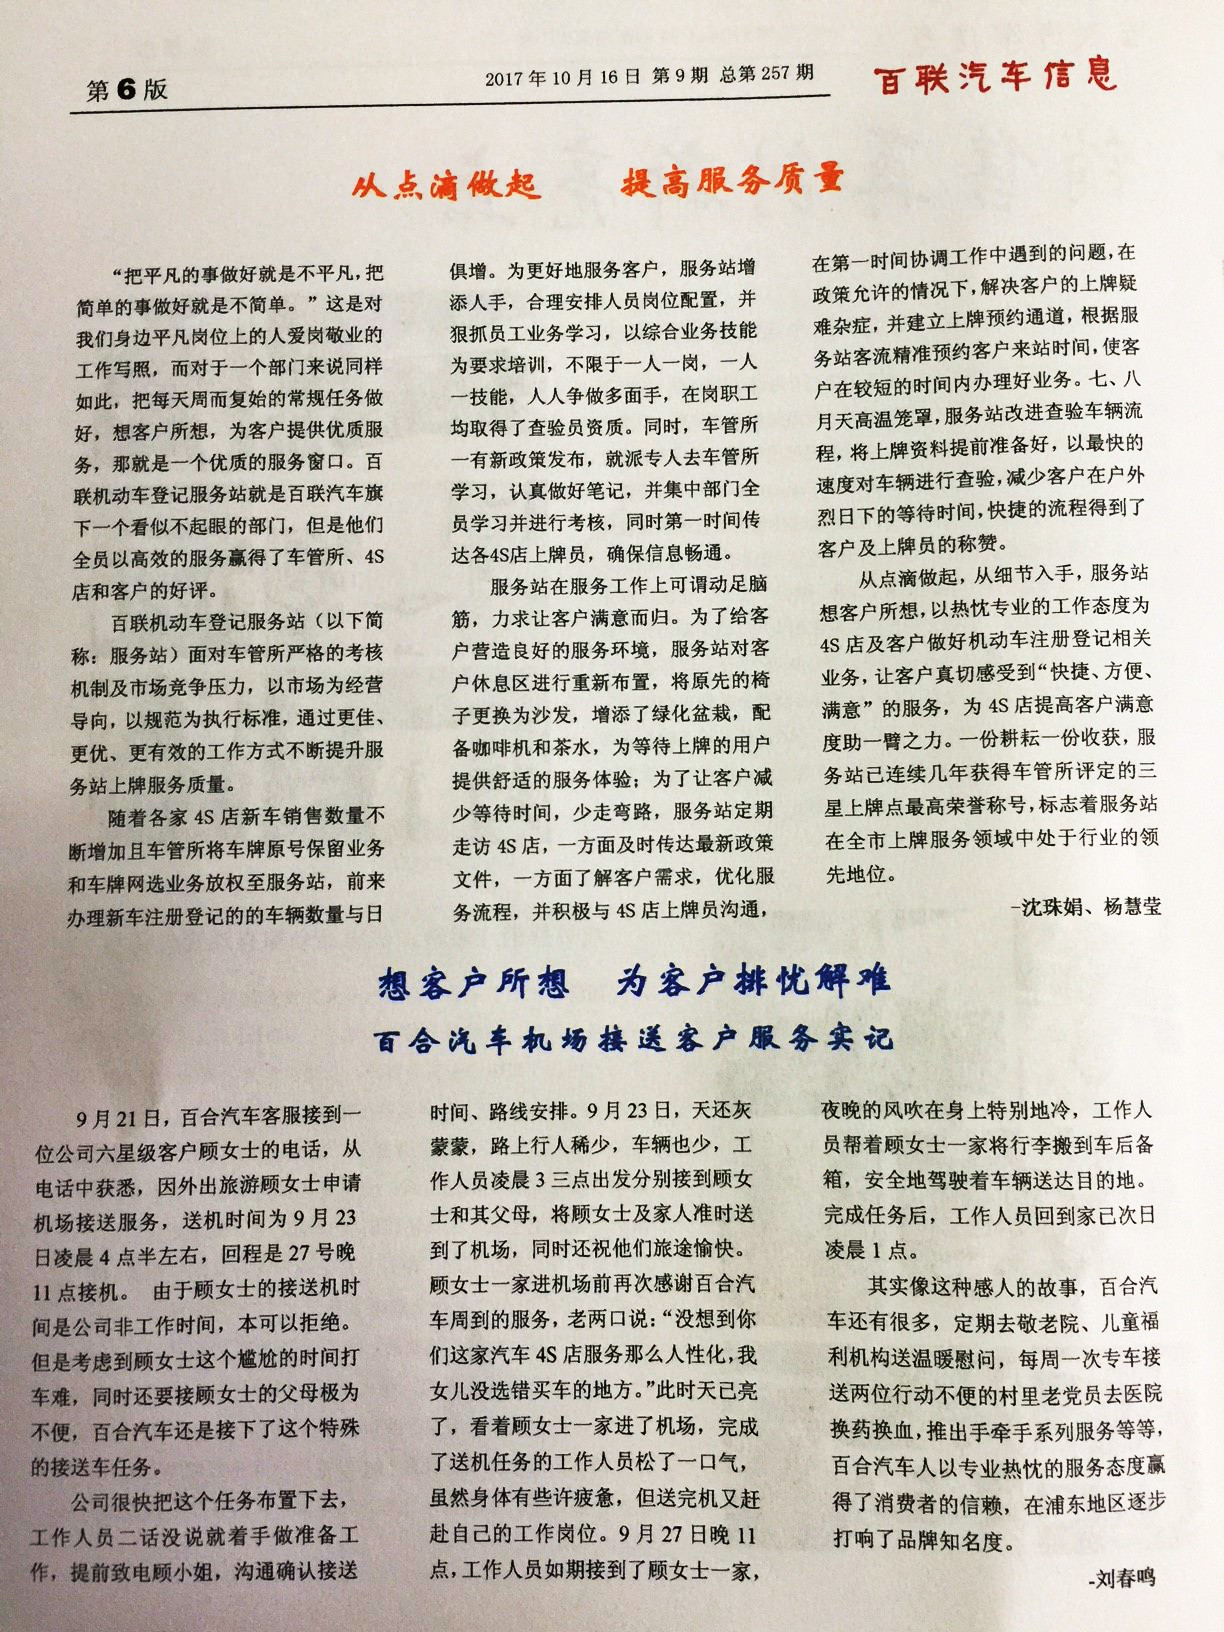 第6版
2017年10月16日 第9期 总第257期
百联汽车信息
从点滴做起 提高服务质量
“把平凡的事做好就是不平凡，把
简单的事做好就是不简单。”这是对
我们身边平凡岗位上的人爱岗敬业的
工作写照，而对于一个部门来说同样
如此，把每天周而复始的常规任务做
好，想客户所想，为客户提供优质服
务，那就是一个优质的服务窗口。百
联机动车登记服务站就是百联汽车旗
下一个看似不起眼的部门，但是他们
全员以高效的服务赢得了车管所、4S
店和客户的好评。
百联机动车登记服务站（以下简
称：服务站）面对车管所严格的考核
机制及市场竞争压力，以市场为经营
导向，以规范为执行标准，通过更佳、
更优、更有效的工作方式不断提升服
务站上牌服务质量。
随着各家4S店新车销售数量不
断增加且车管所将车牌原号保留业务
和车牌网选业务放权至服务站，前来
办理新车注册登记的的车辆数量与日
俱增。为更好地服务客户，服务站增
添人手，合理安排人员岗位配置，并
狠抓员工业务学习，以综合业务技能
为要求培训，不限于一人一岗，一人
一技能，人人争做多面手，在岗职工
均取得了查验员资质。同时，车管所
一有新政策发布，就派专人去车管所
学习，认真做好笔记，并集中部门全
员学习并进行考核，同时第一时间传
达各4S店上牌员，确保信息畅通。
服务站在服务工作上可谓动足脑
筋，力求让客户满意而归。为了给客
户营造良好的服务环境，服务站对客
户休息区进行重新布置，将原先的椅
子更换为沙发，增添了绿化盆栽，配
备咖啡机和茶水，为等待上牌的用户
提供舒适的服务体验；为了让客户减
少等待时间，少走弯路，服务站定期
走访4S店，一方面及时传达最新政策
文件，一方面了解客户需求，优化服
务流程，并积极与4S店上牌员沟通，
在第一时间协调工作中遇到的问题，在
政策允许的情况下，解决客户的上牌疑
难杂症，并建立上牌预约通道，根据服
务站客流精准预约客户来站时间，使客
户在较短的时间内办理好业务。七、八
月天高温笼罩，服务站改进查验车辆流
程，将上牌资料提前准备好，以最快的
速度对车辆进行查验，减少客户在户外
烈日下的等待时间，快捷的流程得到了
客户及上牌员的称赞。
从点滴做起，从细节入手，服务站
想客户所想，以热忱专业的工作态度为
4S店及客户做好机动车注册登记相关
业务，让客户真切感受到“快捷、方便、
满意”的服务，为4S店提高客户满意
度助一臂之力。一份耕耘一份收获，服
务站已连续几年获得车管所评定的三
星上牌点最高荣誉称号，标志着服务站
在全市上牌服务领域中处于行业的领
先地位。
-沈珠娟、杨慧莹
想客户所想 为客户排忧解难
百合汽车机场接送客户服务实记
9月21日，百合汽车客服接到一
位公司六星级客户顾女士的电话，从
电话中获悉，因外出旅游顾女士申请
机场接送服务，送机时间为9月23
日凌晨4点半左右，回程是27号晚
11点接机。 由于顾女士的接送机时
间是公司非工作时间，本可以拒绝。
但是考虑到顾女士这个尴尬的时间打
车难，同时还要接顾女士的父母极为
不便，百合汽车还是接下了这个特殊
的接送车任务。
公司很快把这个任务布置下去，
工作人员二话没说就着手做准备工
作，提前致电顾小姐，沟通确认接送
时间、路线安排。9月23日，天还灰
蒙蒙，路上行人稀少，车辆也少，工
作人员凌晨3三点出发分别接到顾女
士和其父母，将顾女士及家人准时送
到了机场，同时还祝他们旅途愉快。
顾女士一家进机场前再次感谢百合汽
车周到的服务，老两口说：“没想到你
们这家汽车4S店服务那么人性化，我
女儿没选错买车的地方。”此时天已亮
了，看着顾女士一家进了机场，完成
了送机任务的工作人员松了一口气，
虽然身体有些许疲惫，但送完机又赶
赴自己的工作岗位。9月27日晚11
点，工作人员如期接到了顾女士一家，
夜晚的风吹在身上特别地冷，工作人
员帮着顾女士一家将行李搬到车后备
箱，安全地驾驶着车辆送达目的地。
完成任务后，工作人员回到家已次日
凌晨1点。
其实像这种感人的故事，百合汽
车还有很多，定期去敬老院、儿童福
利机构送温暖慰问，每周一次专车接
送两位行动不便的村里老党员去医院
换药换血，推出手牵手系列服务等等，
百合汽车人以专业热忱的服务态度赢
得了消费者的信赖，在浦东地区逐步
打响了品牌知名度。
-刘春鸣